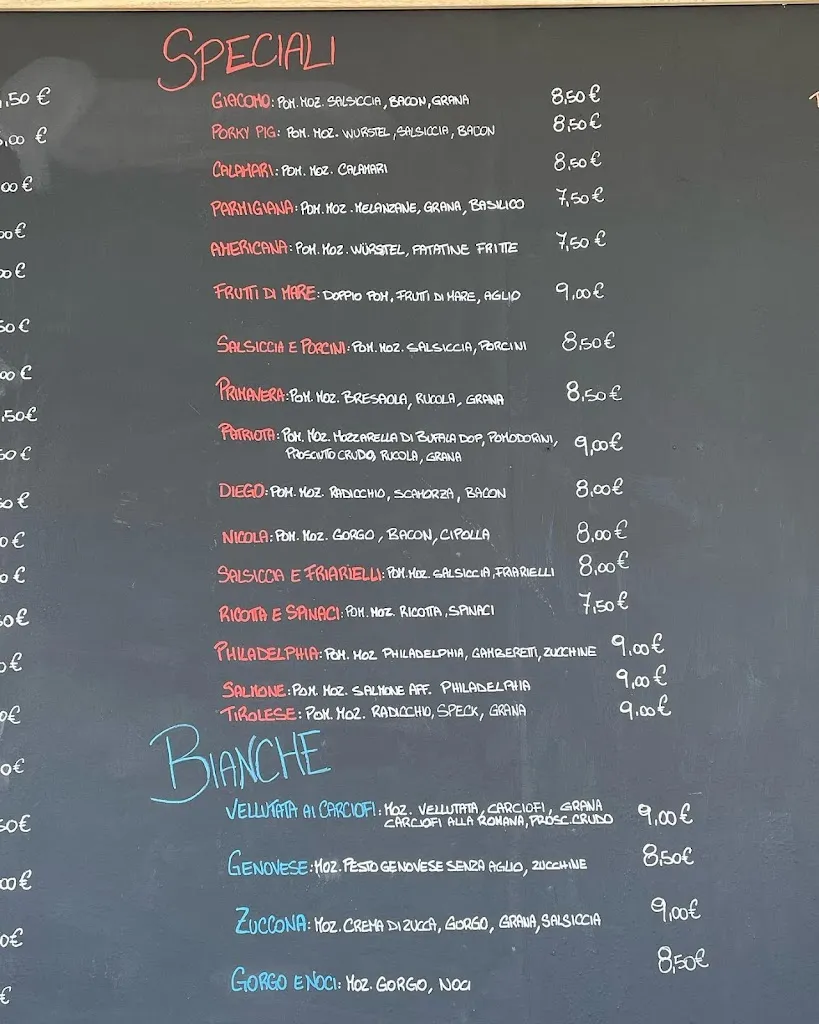 SPECIALI
GIACOMO: POM. MOZ. SALSICCIA, BACON, GRANA 8,50 €
PORKY PIG: POM. MOZ. WURSTEL, SALSICCIA, BACON 8,50 €
CALAMARI: POM. MOZ. CALAMARI 8,50 €
PARMIGIANA: POM. MOZ. MELANZANE, GRANA, BASILICO 7,50 €
AMERICANA: POM. MOZ. WÜRSTEL, PATATINE FRITTE 7,50 €
FRUTTI DI MARE: DOPPIO POM, FRUTTI DI MARE, AGLIO 9,00 €
SALSICCIA E PORCINI: POM. MOZ. SALSICCIA, PORCINI 8,50 €
PRIMAVERA: POM. MOZ. BRESAOLA, RUCOLA, GRANA 8,50 €
PATRIOTA: POM. MOZ. MOZZARELLA DI BUFALA DOP, POMODORINI, 9,00 €
PROSCIUTO CRUDO, RUCOLA, GRANA
DIEGO: POM. MOZ. RADICCHIO, SCAMORZA, BACON 8,00 €
NICOLA: POM. MOZ. GORGO, BACON, CIPOLLA 8,00 €
SALSICCIA E FRIARIELLI: POM. MOZ. SALSICCIA, FRIARIELLI 8,00 €
RICOTTA E SPINACI: POM. MOZ. RICOTTA, SPINACI 7,50 €
PHILADELPHIA: POM. MOZ PHILADELPHIA, GAMBERETTI, ZUCCHINE 9,00 €
SALMONE: POM. MOZ. SALMONE AFF. PHILADELPHIA 9,00 €
TIROLESE: POM. MOZ. RADICCHIO, SPECK, GRANA 9,00 €
BIANCHE
VELLUTATA AI CARCIOFI: MOZ. VELLUTATA, CARCIOFI, GRANA 9,00 €
CARCIOFI ALLA ROMANA, PROSC. CRUDO
GENOVESE: MOZ. PESTO GENOVESE SENZA AGLIO, ZUCCHINE 8,50 €
ZUCCONA: MOZ. CREMA DI ZUCCA, GORGO, GRANA, SALSICCIA 9,00 €
GORGO E NOCI: MOZ. GORGO, NOCI 8,50 €